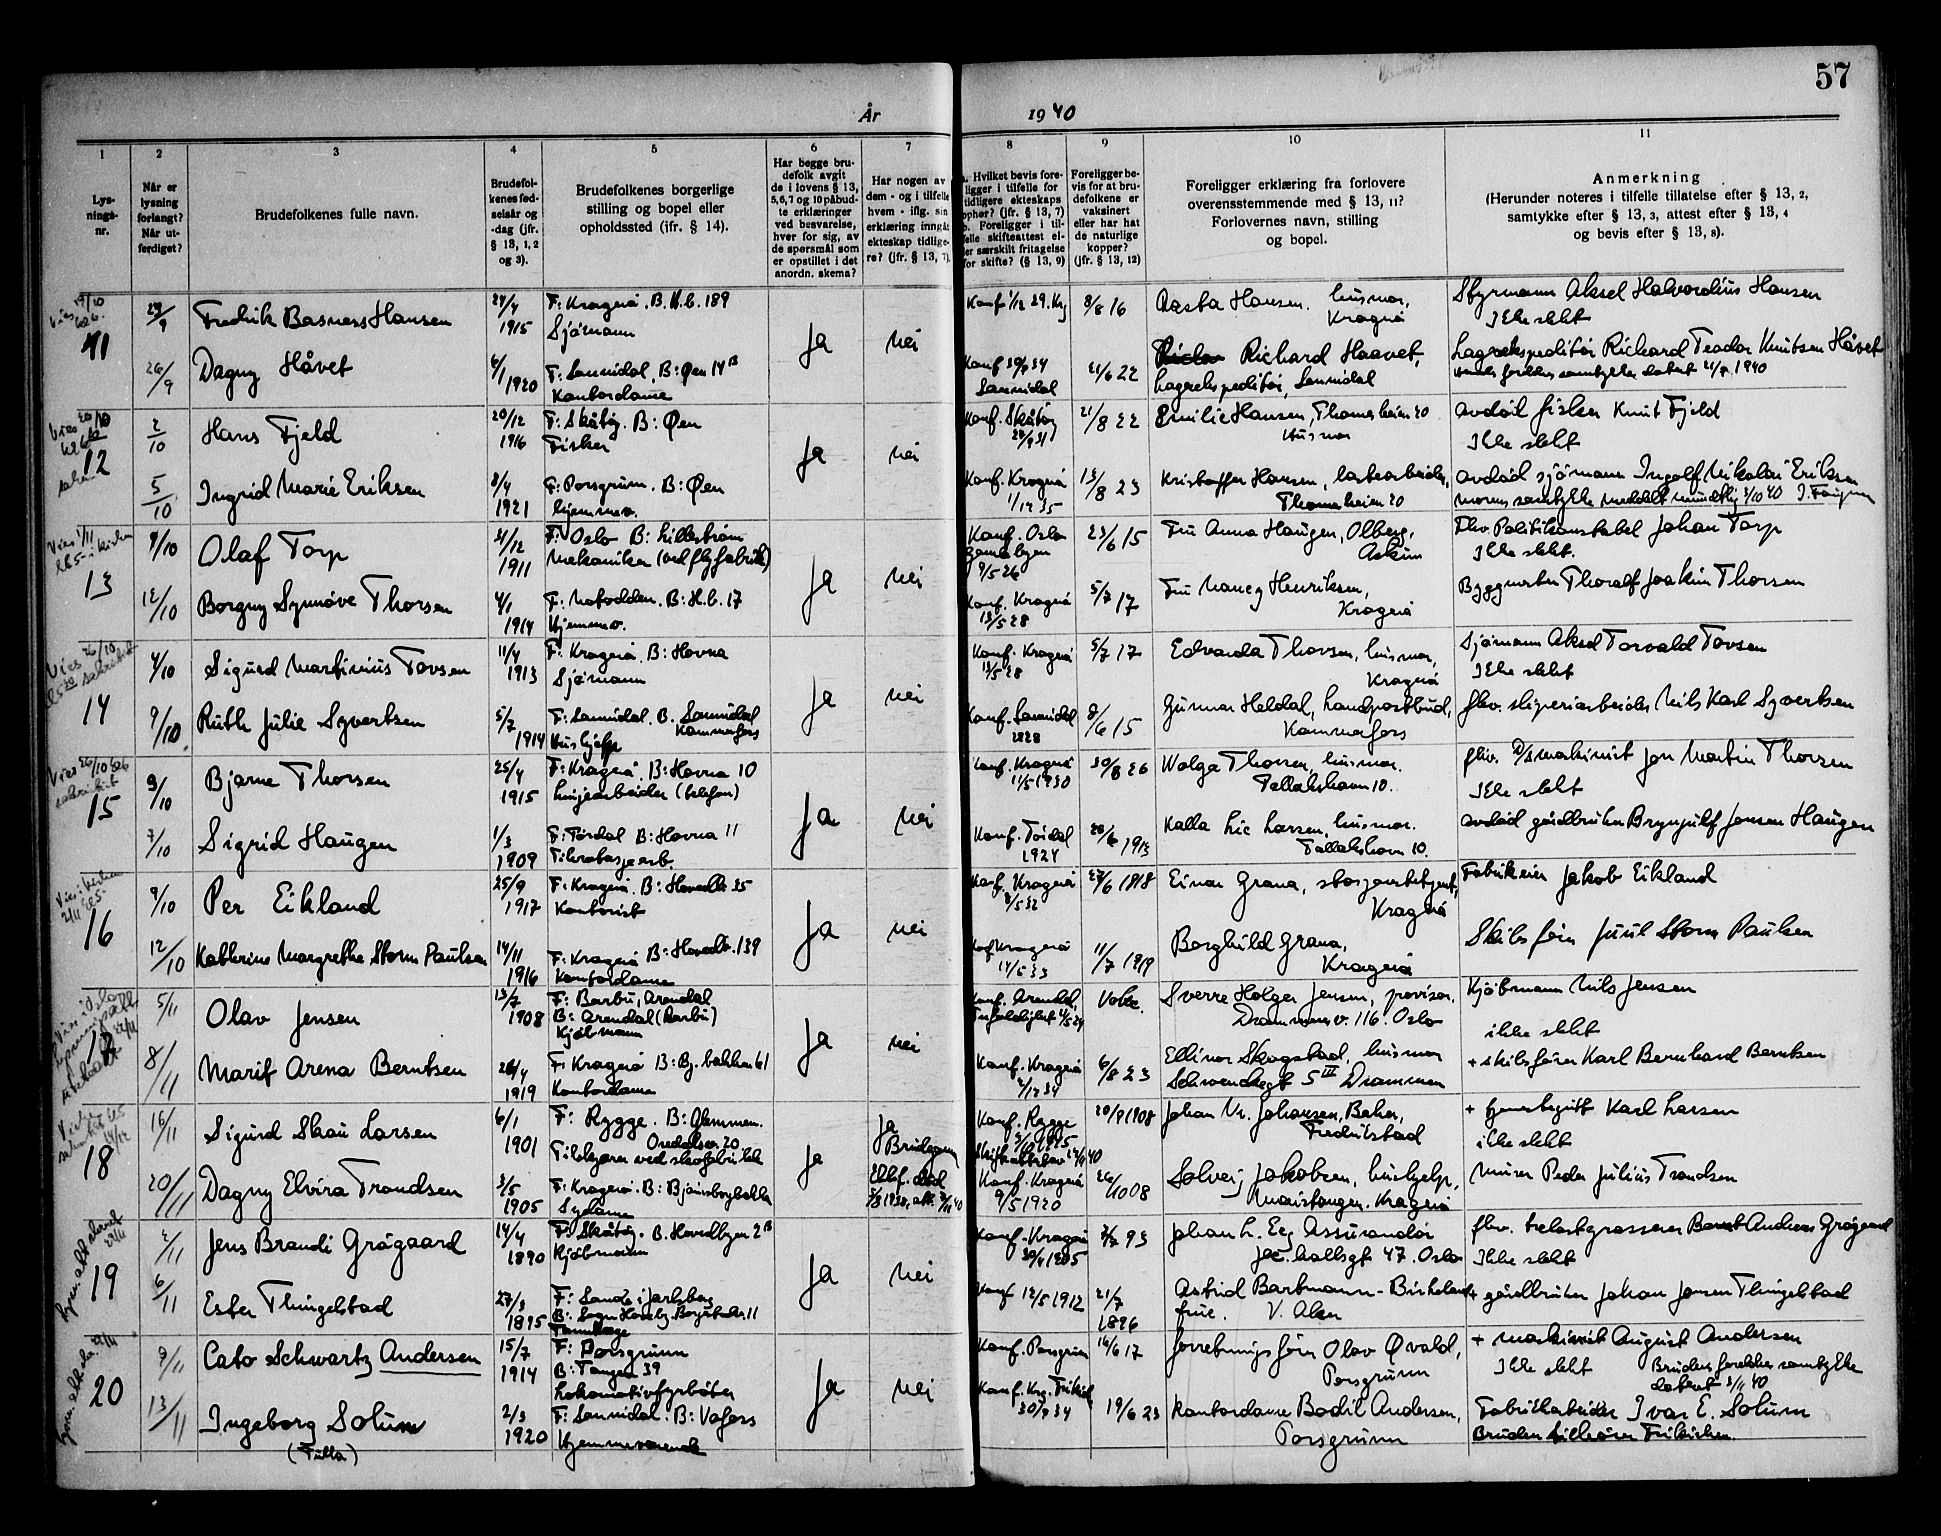 57
År 1940
1
Lys-
nings-
nr.
2
Når er
lysning
forlangt?
Når ut-
ferdiget?
3
Brudefolkenes fulle navn.
4
Brudefol-
kenes fød-
selsår og
-dag (jfr.
§ 13, 1, 2
og 3).
5
Brudefolkenes borgerlige
stilling og bopel eller
opholdssted (jfr. § 14).
6
Har begge bru-
defolk avgit
de i lovens § 13,
5,6,7 og 10 påbud-
te erklæringer
ved besvarelse,
hver for sig, av
de spørsmål som
er opstillet i det
anordn. skema?
7
Har nogen av
dem - og i tilfelle
hvem - iflg. sin
erklæring inngåt
ekteskap tidlige-
re? (jfr. § 13, 7).
8
Hvilket bevis fore-
ligger i tilfelle for
tidligere ekteskaps
ophør? (jfr. § 13, 7)
Foreligger i til-
felle skifteattest el-
ler særskilt fritagelse
for skifte? (§ 13, 9)
9
Foreligger be-
vis for at bru-
defolkene er
vaksinert
eller har hat
de naturlige
kopper?
(jfr. § 13, 12)
10
Foreligger erklæring fra forlovere
overensstemmende med § 13, 11?
Forlovernes navn, stilling
og bopel.
11
Anmerkning
(Herunder noteres i tilfelle tillatelse efter § 13, 2,
samtykke efter § 13, 3, attest efter § 13, 4
og bevis efter § 13, 8).
Fredrik Basness Hansen
1915
F: Kragerø. B. H.b. 189
Sjømann
Ja
nei
8/8 16
Aasta Hansen, husmor,
Kragerø
Styrmann Aksel Halvordius Hansen
Ikke slekt
26/9
Dagny Håvet
6/1 1920
F: Sannidal, B: Øen 14 B
Kontordame
Konf
Sannidal
21/6 22
Richard Haavet,
lagerekspeditør, Sannidal
Lagerekspeditør Richard Teodor Knutsen Håvet
12
2/10
Hans Fjeld
20/12
1916
F: Skåtøy. B: Øen
Fisker
Ja
nei
Konf. Skåtøy
21/8 22
Emilie Hansen, Thomesheien 20
Husmor
avdød fisker Knut Fjeld
Ikke slekt
5/10
Ingrid Marie Eriksen
8/4
1921
F: Porsgrunn. B: Øen
hjemmev.
Konf. Kragerø
13/8 23
Kristoffer Hansen, lastearbeider,
Thomesheien 20
avdød sjømann Ingolf Nikolai Eriksen
13
9/10
Olaf Torp
1911
F: Oslo B: Lillestrøm
Mekaniker (ved flyfabrikk)
Ja
nei
Konf. Oslo
Gamlebyen
9/5 26
23/6 15
Fru Anna Haugen, Olberg,
Askim
Fhv. Politikonstabel Johan Torp
Ikke slekt.
12/10
Borgny Synnøve Thorsen
4/1
1914
F: Notodden. B: H.b. 17
Hjemmev.
Konf. Kragerø
13/5 28
5/7 17
Fru Nancy Henriksen,
Kragerø
Byggmester Thoralf Joakim Thorsen
14
4/10
Sigurd Martinius Tovsen
11/4
1913
F: Kragerø. B: Hovna
Sjømann
Ja
nei
Konf. Kragerø
13/5 28
5/7 17
Edvarda Thorsen, husmor,
Kragerø
Sjømann Aksel Torvald Tovsen
Ikke slekt
9/10
Ruth Julie Syvertsen
5/7
1914
F: Sannidal. B. Sannidal
Kammafoss
Hushjelp
Konf. Sannidal
1928
8/6 15
Gunnar Heldal, landpostbud,
Kammafoss
fhv. sliperiarbeider Nils Karl Syvertsen
15
9/10
Bjarne Thorsen
25/4
1915
F: Kragerø. B: Hovna 10
Linjearbeider (telefon)
Ja
nei
Konf. Kragerø
11/5 1930
30/8 26
Wolga Thorsen, husmor.
Tallakshavn 10.
fhv. D/s maskinist Jon Martin Thorsen
Ikke slekt
7/10
Sigrid Haugen
1/3
1909
F: Tørdal B: Hovna 11
Konf. Tørdal
1924
28/6 1913
Kalla Lie Larsen, husmor.
Tallakshavn 10.
avdød gårdbruker Brynjulf Jensen Haugen
16
9/10
Per Eikland
25/9
1917
F: Kragerø. B: Hovedb. 25
Kontorist
Ja
nei
Konf. Kragerø
8/5 32
27/6 1818
Einar Grana, stasjonsbetjent,
Kragerø
Fabrikeier Jakob Eikland
12/10
Kathrine Margrethe Storm Paulsen
14/11
1916
F: Kragerø B: Hovedb. 139
Kontordame
Konf Kragerø
11/7 1919
Borghild Grana,
Kragerø
Skibsfører Juul Storm Paulsen
5/11
Olav Jensen
13/7
1908
F: Barbu, Arendal
B: Arendal (Barbu)
Kjøbmann
Ja
nei
Konf. Arendal,
Trefoldighet
Sverre Holger Jensen, provisor,
Drammensv. 116. Oslo
Kjøbmann Nils Jensen
ikke slekt
8/11
Marit Arena Berntsen
1919
F: Kragerø B: Bj. bakken 61
Kontordame
Konf. Kragerø
6/8 23
Ellinor Skogstad, husmor
Schwenckegt 5 III Drammen
+ skibsfører Karl Bernhard Berntsen
18
16/11
Sigurd Skau Larsen
6/1
1901
F: Rygge. B: Glemmen.
Oredalsv. 20
Tilskjærer ved skofabrikk
Ja
Ja
Brudgom
Konf. Rygge
20/9 1908
Johan Nr. Johansen, Baker,
Fredrikstad
Karl Larsen
ikke slekt
20/11
Dagny Elvira Trondsen
3/5
1905
F: Kragerø. B: Bjørnsborgbakken
Sydame
Konf. Kragerø
9/5 1920
Solveig Jakobsen, hushjelp,
Kragerø
Murer Peder Julius Trondsen
19
2/11
Jens Brandi Grågaard
14/4
1890
F: Skåtøy. B. Hovedbyen 2 B
Kjøbmann
Ja
nei
Konf. Kragerø
2/7 93
Johan L. Eeg Assurandør
Jac. hallsgt 47. Oslo
fhv. trelastgrosserer Bernt Andreas Grågaard
Ikke slekt
6/11
Ester Thingelstad
27/3
1895
F: Sande i Jarlsberg
Tannlege
Konf 12/5 1912
21/7
1896
Astrid Bartmann-Birkeland
frue. V. Aker
+ gårdbruker Johan Jensen Thingelstad
20
9/11
Cato Schwartz Andersen
15/7
1914
F: Porsgrunn
B: Tangen 39
Lokomotivfyrbøter
Ja
nei
Konf. Porsgrunn
16/6 17
forretningsfører Olav Øvald,
Porsgrunn
+ maskinist August Andersen
Ikke slekt
Brudens foreldres samtykke
datert 8/11 40
13/11
Ingeborg Solum
(Tulla)
2/3
1920
F: Sannidal. B: Vafoss
Hjemmeværende
Konf. Krg. Frikirke
30/9 34
19/6 23
Kontordame Bodil Andersen,
Porsgrunn
Fabrikkarbeider Ivar E. Solum
Bruden tilhører Frikirken.